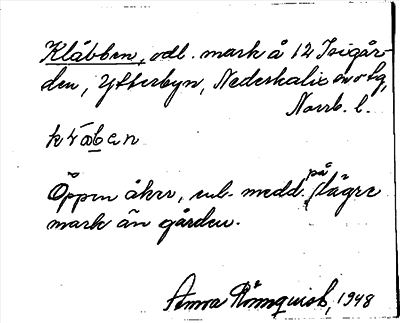 Klåbben, odl. mark å 12 Isigår-
den, Ytterbyn, Nederkalix sn o fg,
Norrb. l.
Öppen åker, enl. medd. på lägre
mark än gården.
Anna Rönnquist, 1948